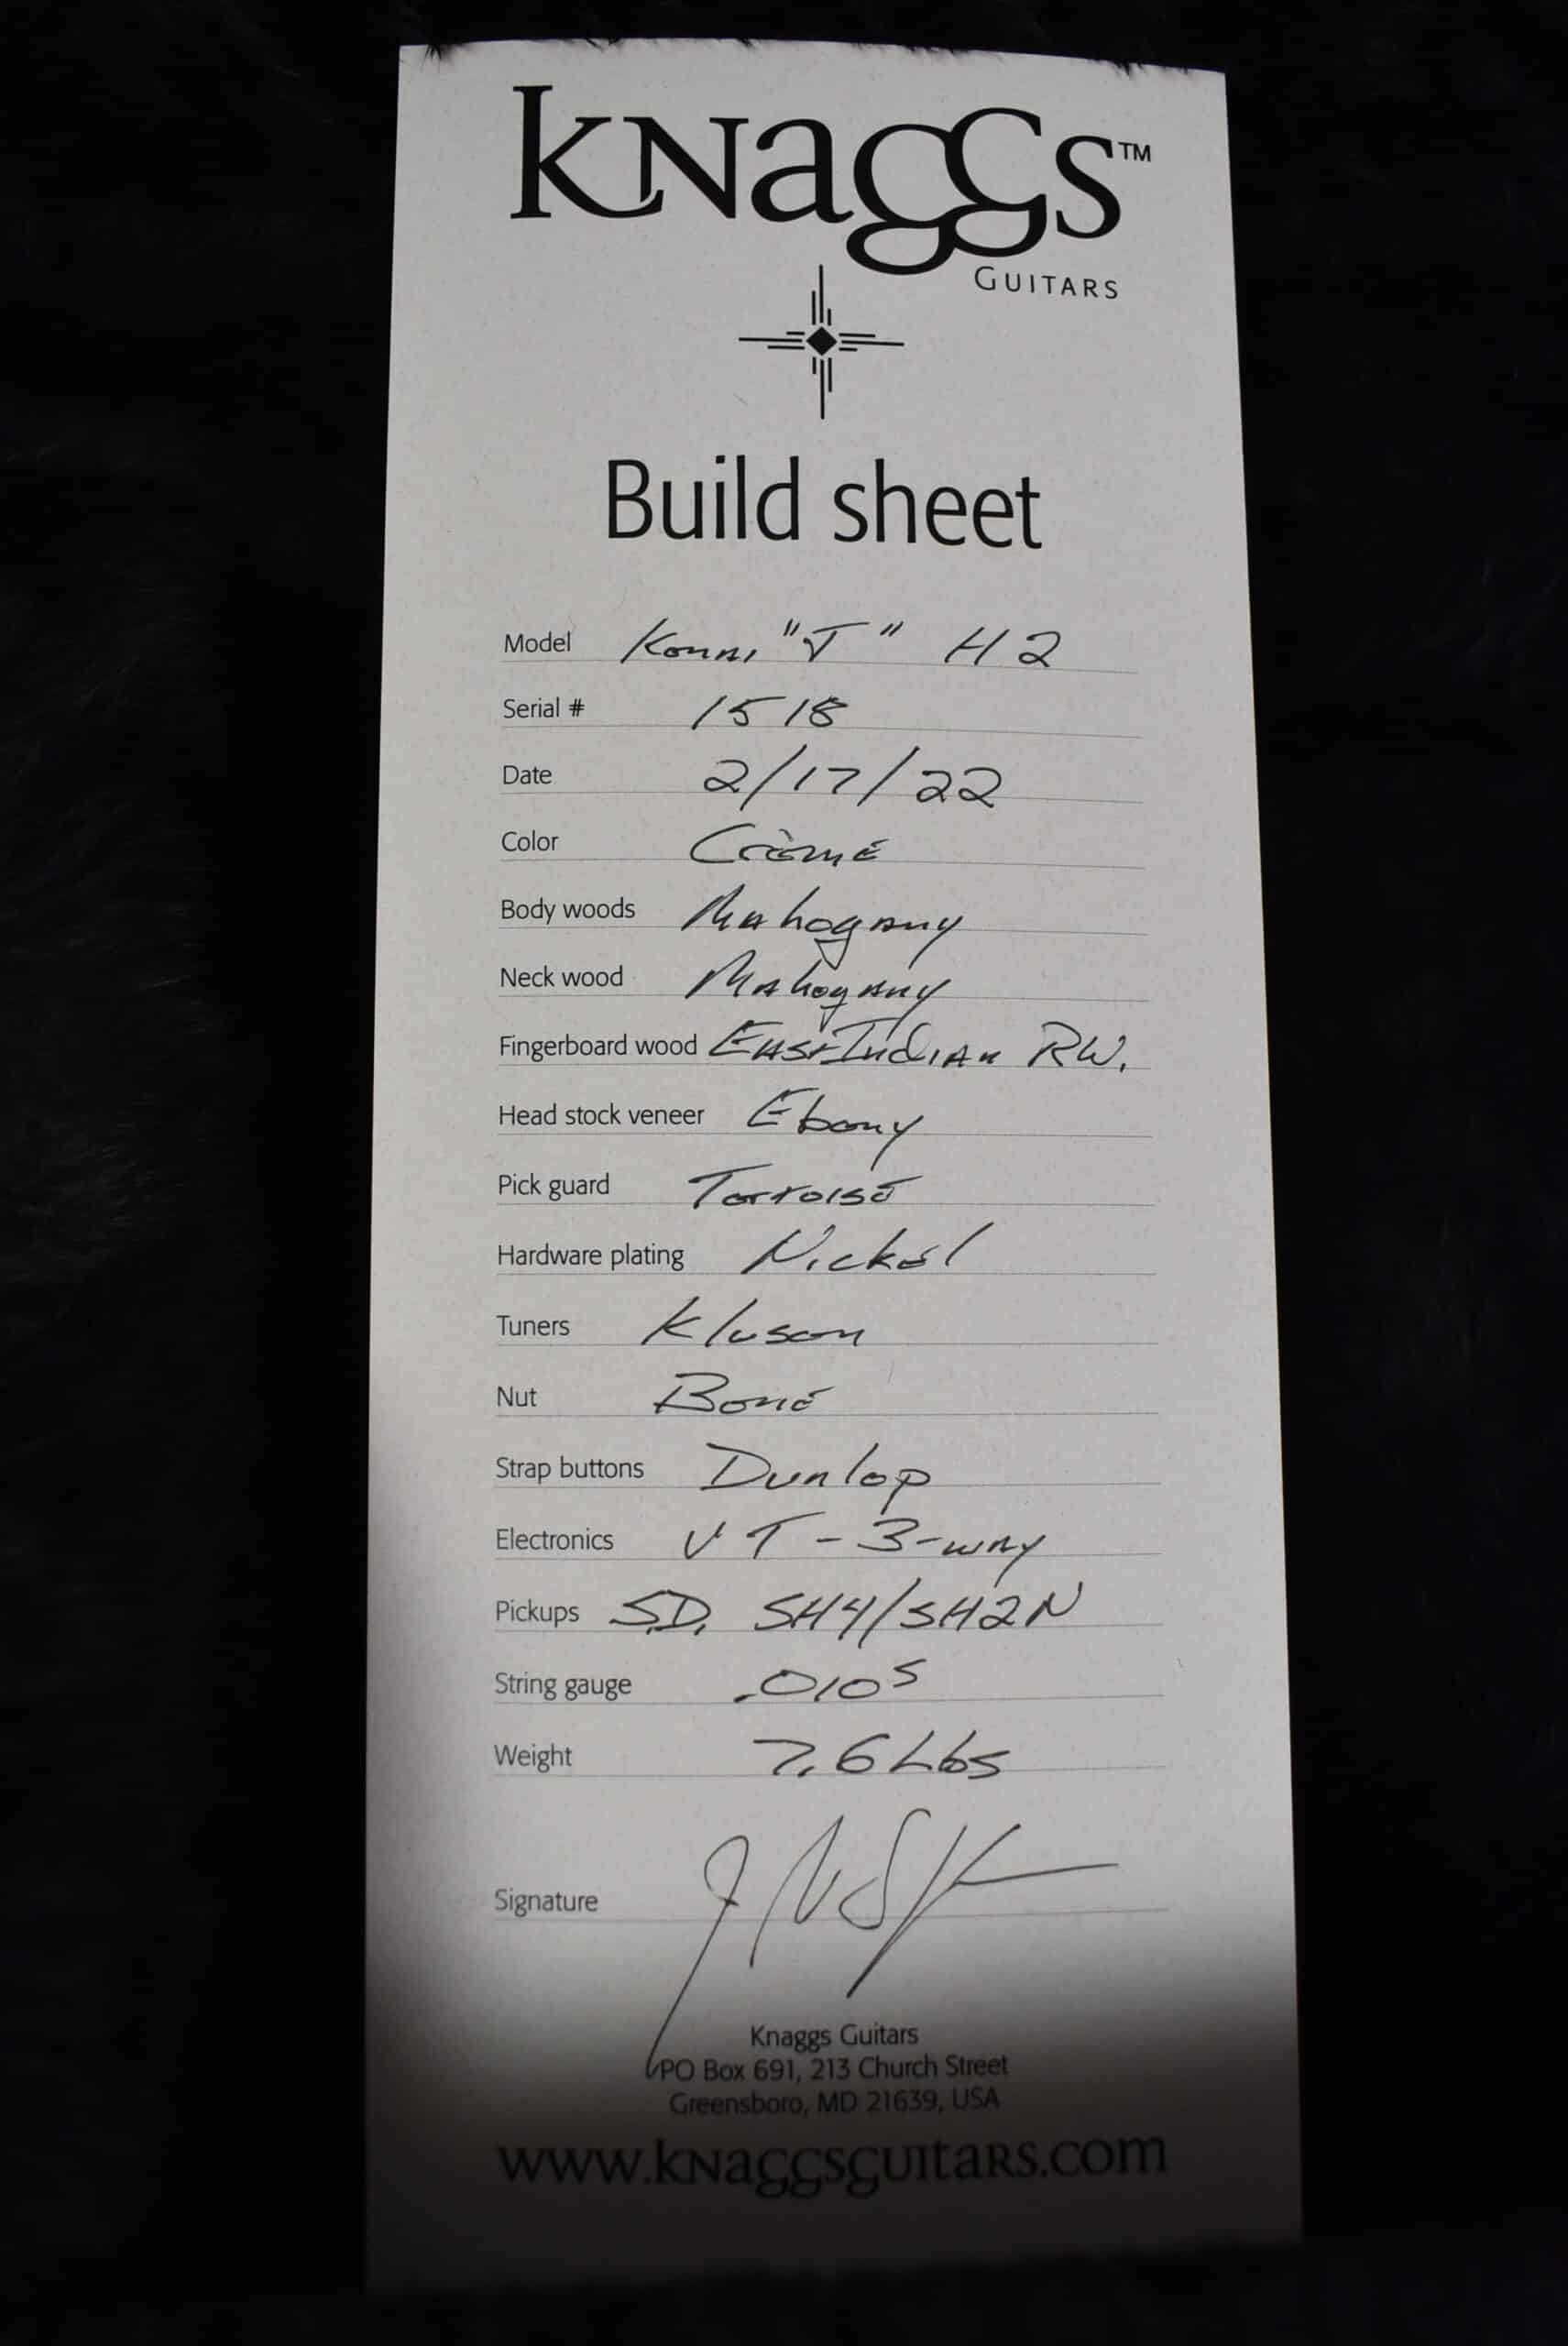 KNaGGS™
GUITARS
Build sheet
Model Konai "J" H2
Serial # 1518
Date 2/17/22
Color Crème
Body woods Mahogany
Neck wood Mahogany
Fingerboard wood East Indian RW.
Head stock veneer Ebony
Pick guard Tortoise
Hardware plating Nickel
Tuners Kluson
Nut Bone
Strap buttons Dunlop
Electronics VT-3-way
Pickups S.D. SH4/SH2N
String gauge .010s
Weight 7.6 Lbs
Signature
Knaggs Guitars
PO Box 691, 213 Church Street
Greensboro, MD 21639, USA
www.knaggsguitars.com